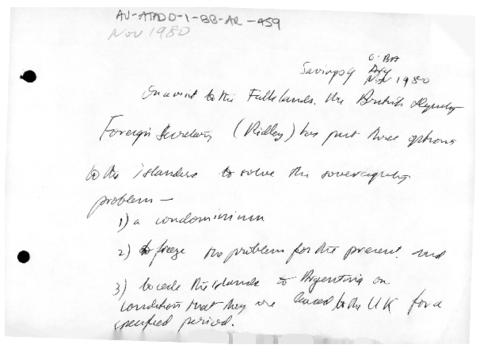 AV-ATADO-1-BB-AR-459
Nov 1980
Savingsy
Nov 1980
On a visit to the Falklands, the British Deputy
Foreign Secretary (Ridley) has put three options
to the islanders to solve the sovereignty
problem —
1) a condominium
2) to freeze the problem for the present, and
3) to cede the islands to Argentina on
condition that they are leased to the UK for a
specified period.